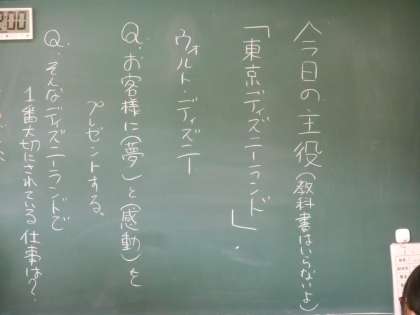 今日の主役(教科書はいらないよ)
「東京ディズニーランド」.
ウォルト・ディズニー
Q.お客様に(夢)と(感動)を
プレゼントする。
Q.そんなディズニーランドで
1番大切にされている仕事は?
:00